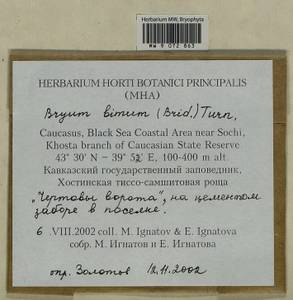 Herbarium MW, Bryophyta
MW 9 072 863
HERBARIUM HORTI BOTANICI PRINCIPALIS
(MHA)
Bryum bimum (Brid.) Turn,
Caucasus, Black Sea Coastal Area near Sochi,
Khosta branch of Caucasian State Reserve
43° 30' N – 39° 52' E, 100-400 m alt.
Кавказский государственный заповедник,
Хостинская тиссо-самшитовая роща
"Чертовы ворота", на цементом
заборе в поселке.
6 .VIII.2002 coll. M. Ignatov & E. Ignatova
собр. М. Игнатов и Е. Игнатова
опр. Золотов 12.11.2002